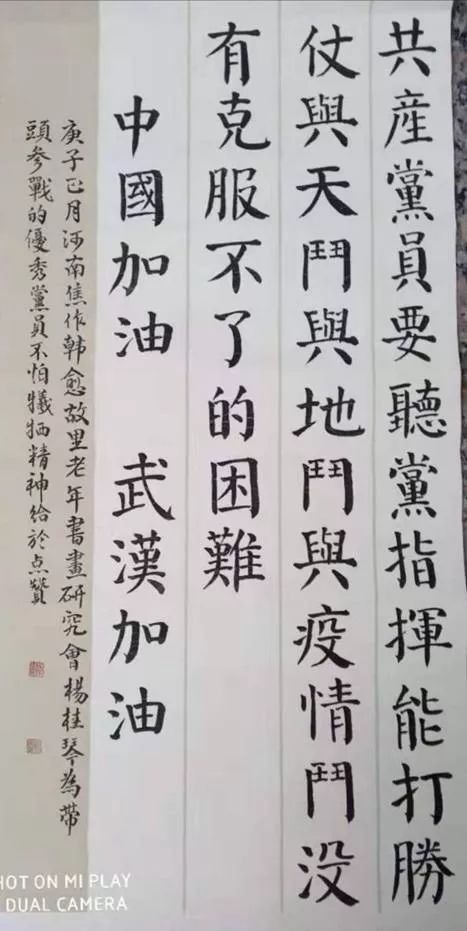 共産黨員要聽黨指揮能打勝
仗與天鬥與地鬥與疫情鬥没
有克服不了的困難
中國加油 武漢加油
庚子正月河南焦作韓愈故里老年書畫研究會楊桂琴為帶
頭參戰的優秀黨員不怕犧牲精神給於点贊
SHOT ON MI PLAY
DUAL CAMERA